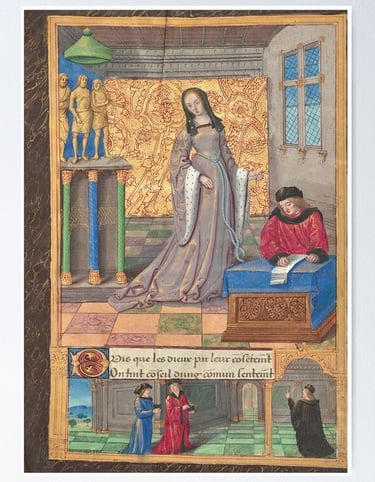 PVis que les dieux par leur cōsetemēt
Ont tint cōseil dung comun sentemēt